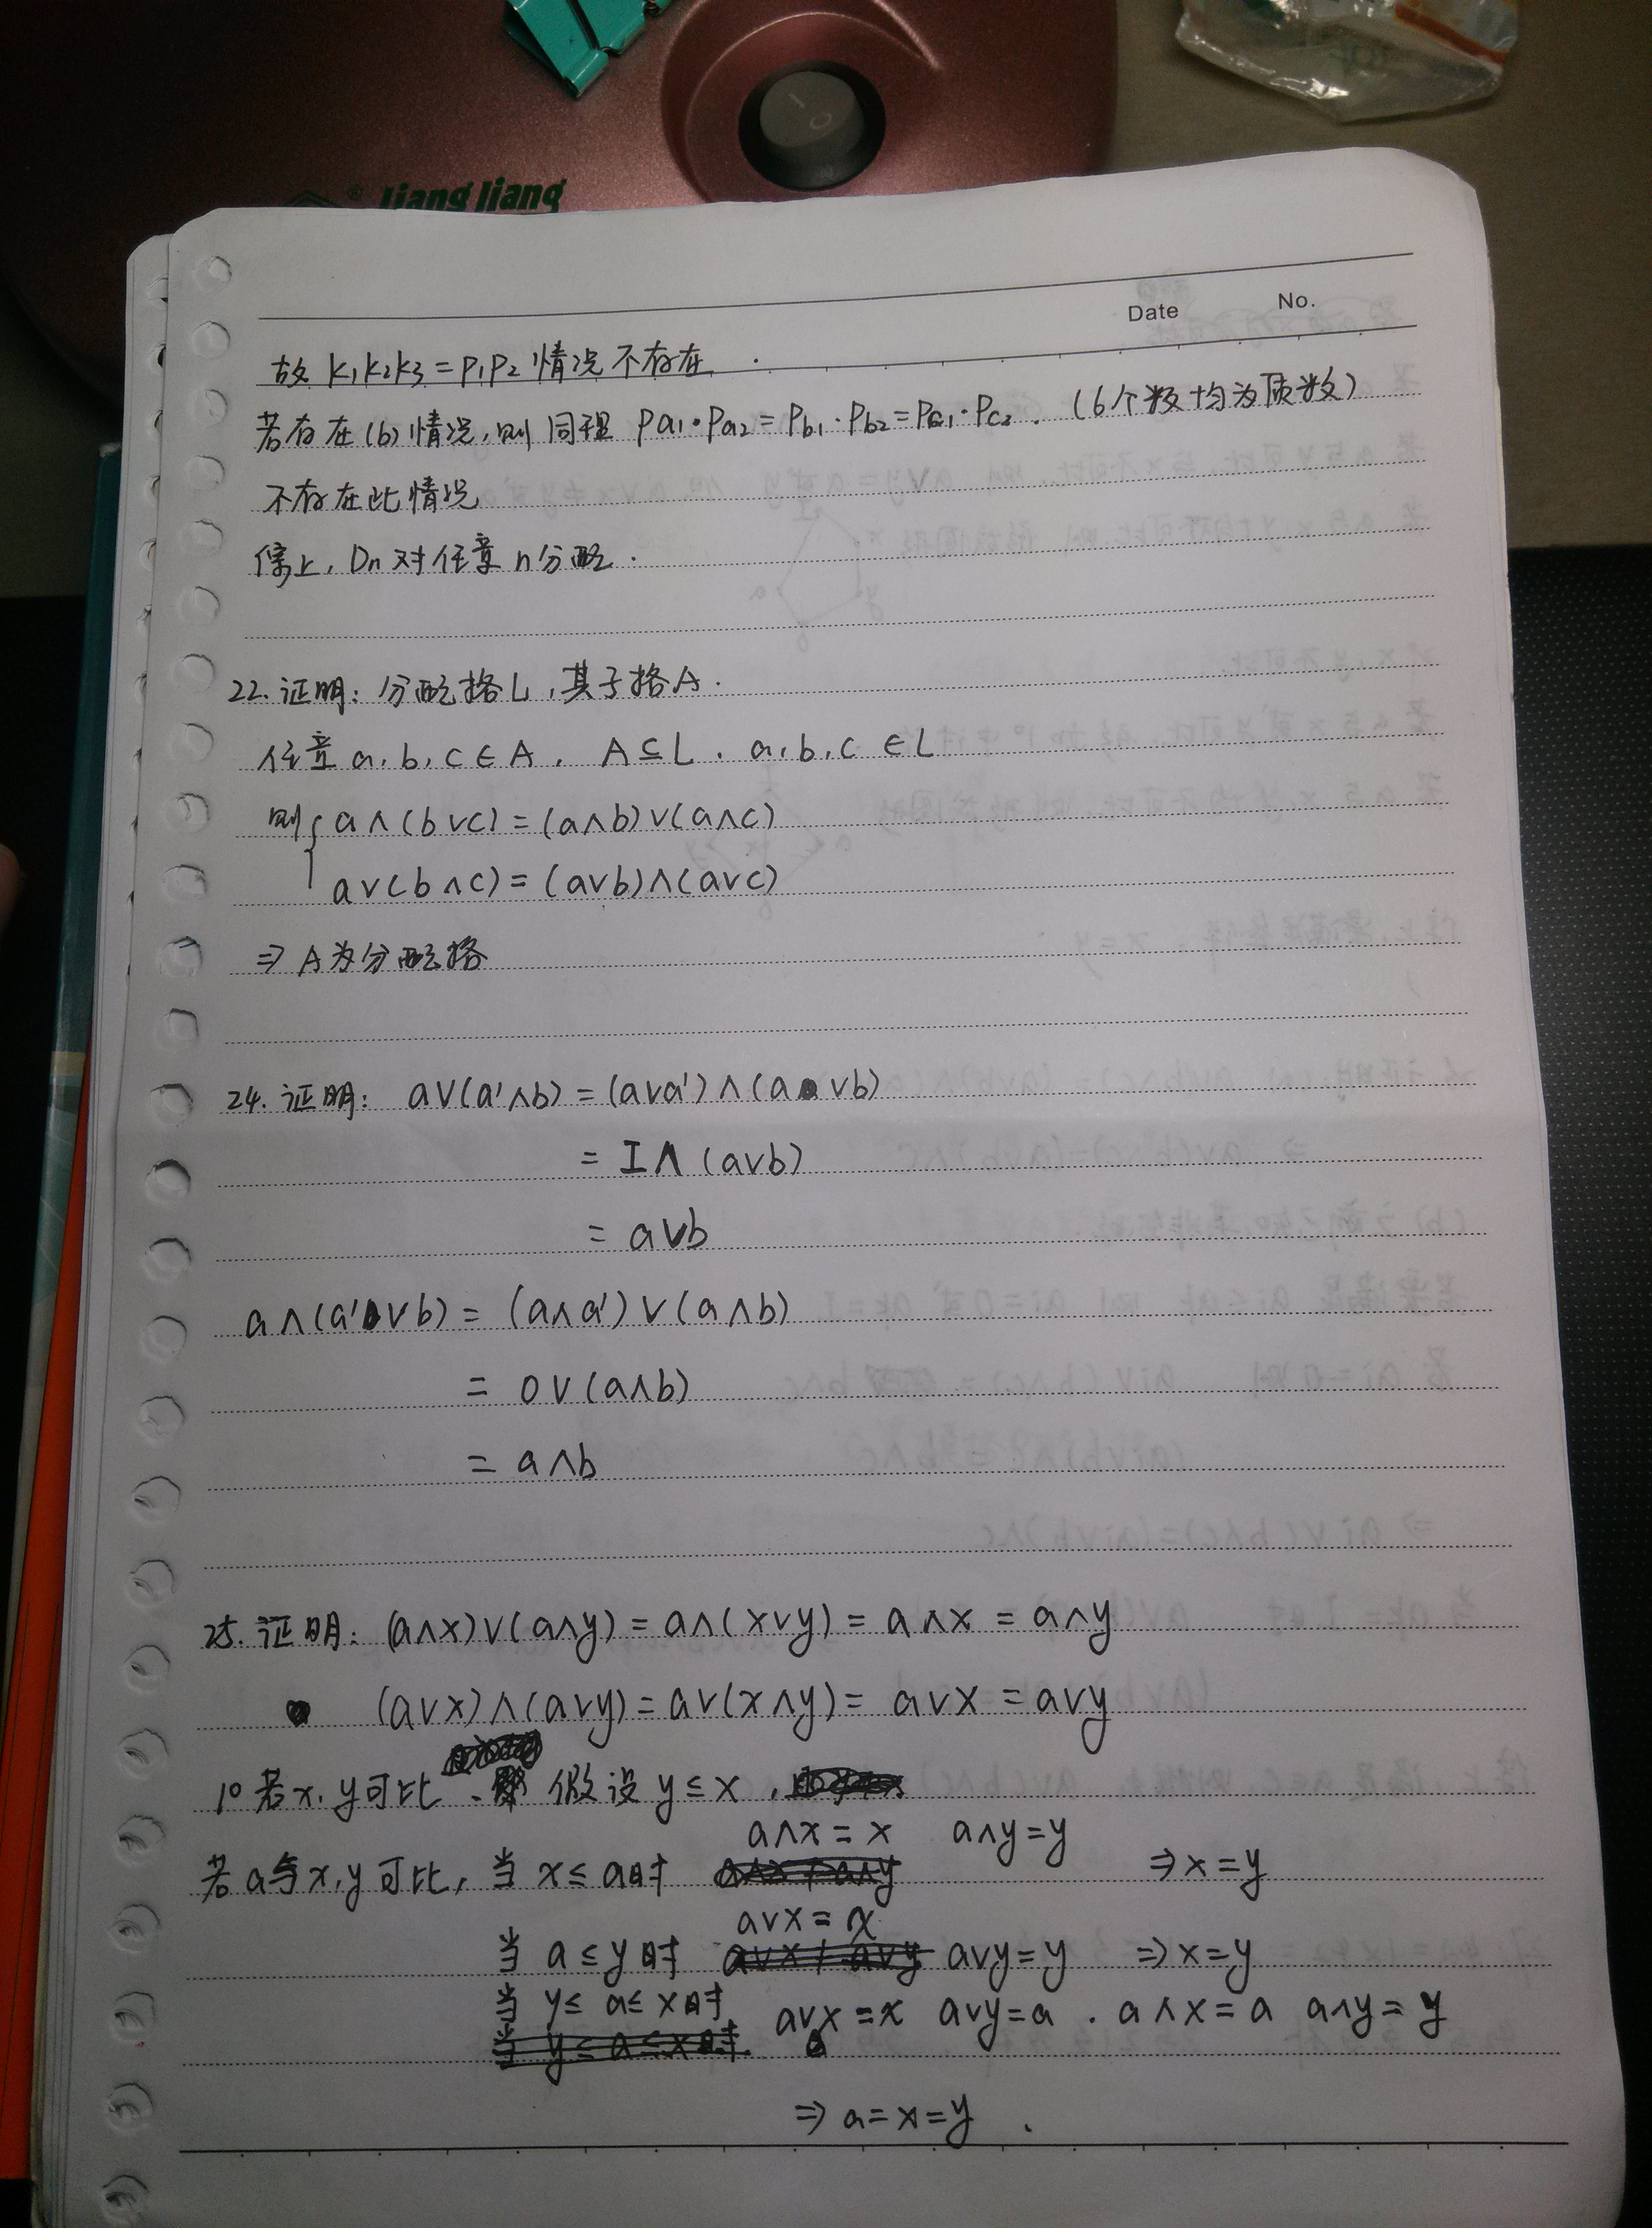 liangliang
Date No.
故 k₁k₂k₃=p₁p₂ 情况不存在.
若存在(b)情况,则同理 Pa₁·Pa₂=Pb₁·Pb₂=Pc₁·Pc₂. (6个数均为质数)
不存在此情况
综上, Dn对任意n分配.
22. 证明: 分配格L,其子格A.
任意 a,b,c∈A. A⊆L. a,b,c∈L
则{ a∧(b∨c)=(a∧b)∨(a∧c)
a∨(b∧c)=(a∨b)∧(a∨c)
⇒ A为分配格
24. 证明: a∨(a'∧b)=(a∨a')∧(a∨b)
= I∧(a∨b)
= a∨b
a∧(a'∨b)=(a∧a')∨(a∧b)
= 0∨(a∧b)
= a∧b
25. 证明: (a∧x)∨(a∧y)=a∧(x∨y)=a∧x=a∧y
(a∨x)∧(a∨y)=a∨(x∧y)=a∨x=a∨y
1° 若x,y可比、假设 y≤x,
若a与x,y可比, 当 x≤a时 a∧x=x a∧y=y ⇒x=y
当 a≤y时 a∨x=x a∨y=y ⇒x=y
当 y≤a≤x时 a∨x=x a∨y=a. a∧x=a a∧y=y
⇒ a=x=y.